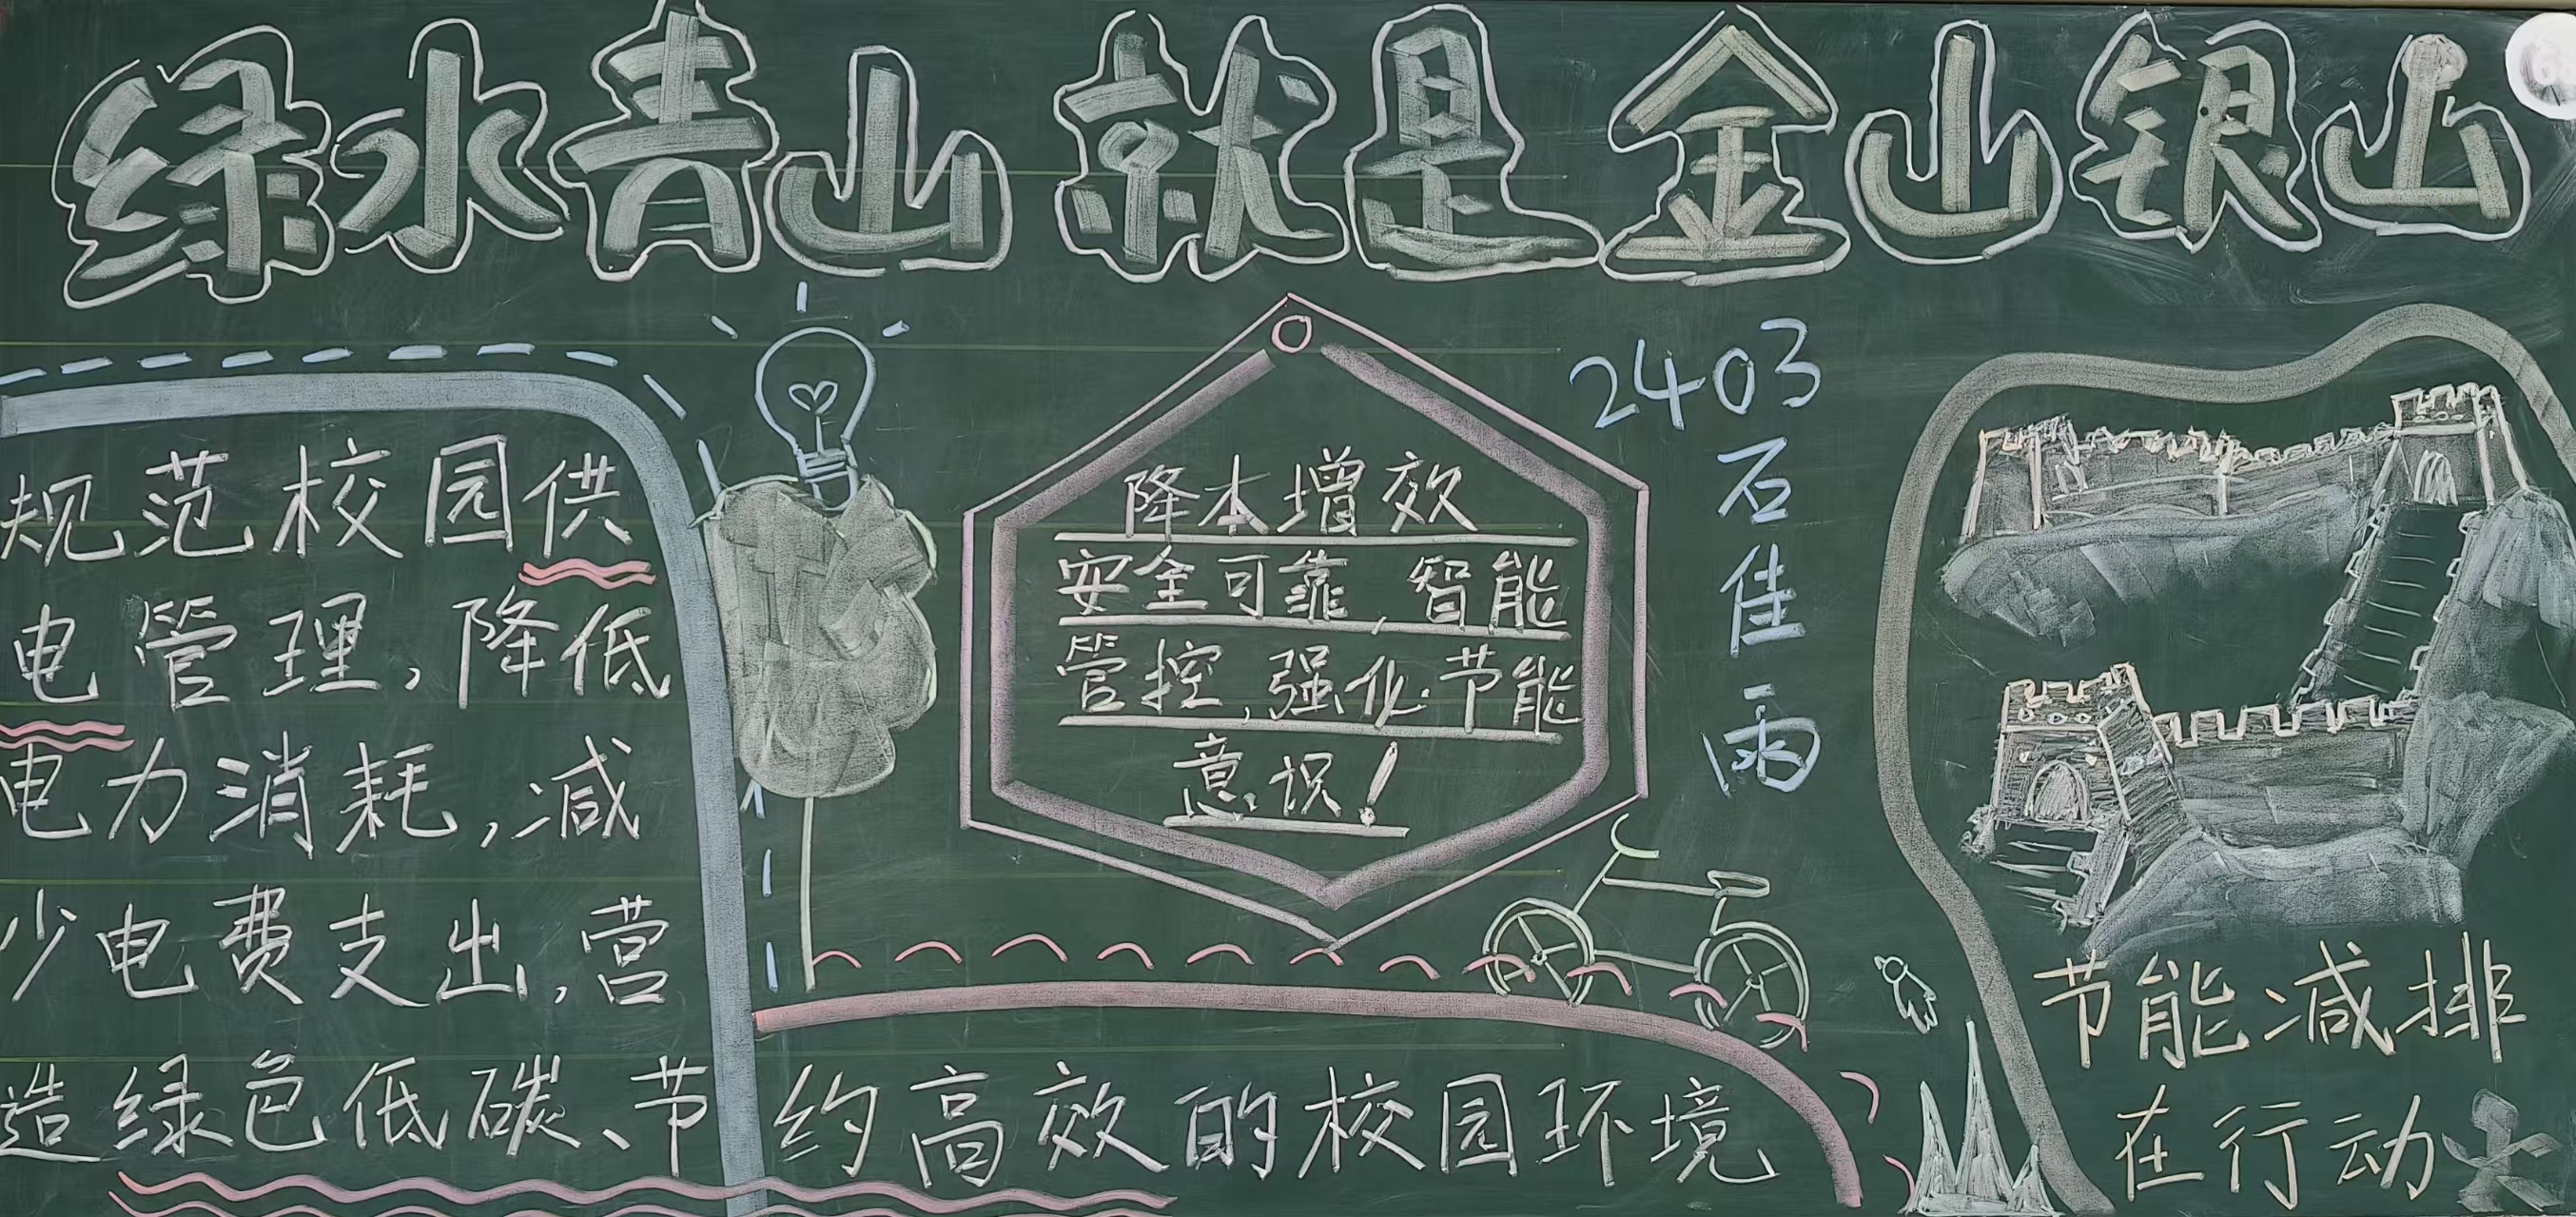 绿水青山就是金山银山
规范校园供
电管理,降低
电力消耗,减
少电费支出,营
造绿色低碳、节约高效的校园环境
降本增效
安全可靠,智能
管控,强化节能
意识!
2403
石佳雨
节能减排
在行动